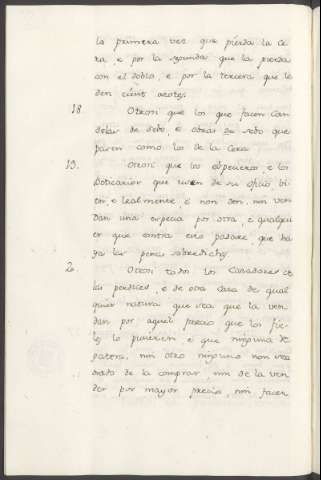 la primera vez que pierda la ce
ra, e por la segunda que la pierda
con el doblo, e por la tercera que le
den cient azotes
18 Otrosi que los que facen can
delas de sebo, e obras de sebo que
pasen como los de la cera
19. Otrosi que los espezieros e los
Boticarios que usen de su oficio bi
en, e lealmente, e non den, nin ven
dan una especia por otra, e qualqui
er que contra esto pasare, que ha
ya las penas sobredichas
2 Otrosi todos los Cazadores de
las perdices, e de otra caza de qual
quier natura que sea que la ven
dan por aquel precio que los fie
les lo pusieren, e que ninguna re
gatera, nin otro ninguno non sea
osado de la comprar nin de la ven
der por mayor precio, nin facer